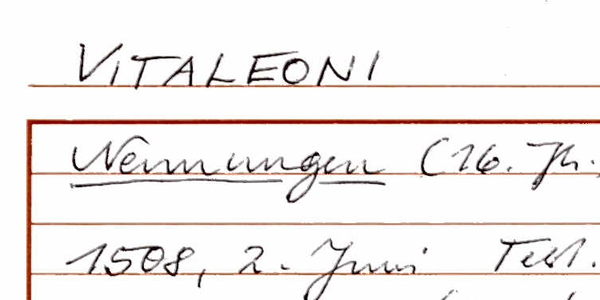 VITALEONI
Nennungen (16. Jh.
1508, 2. Juni Test.